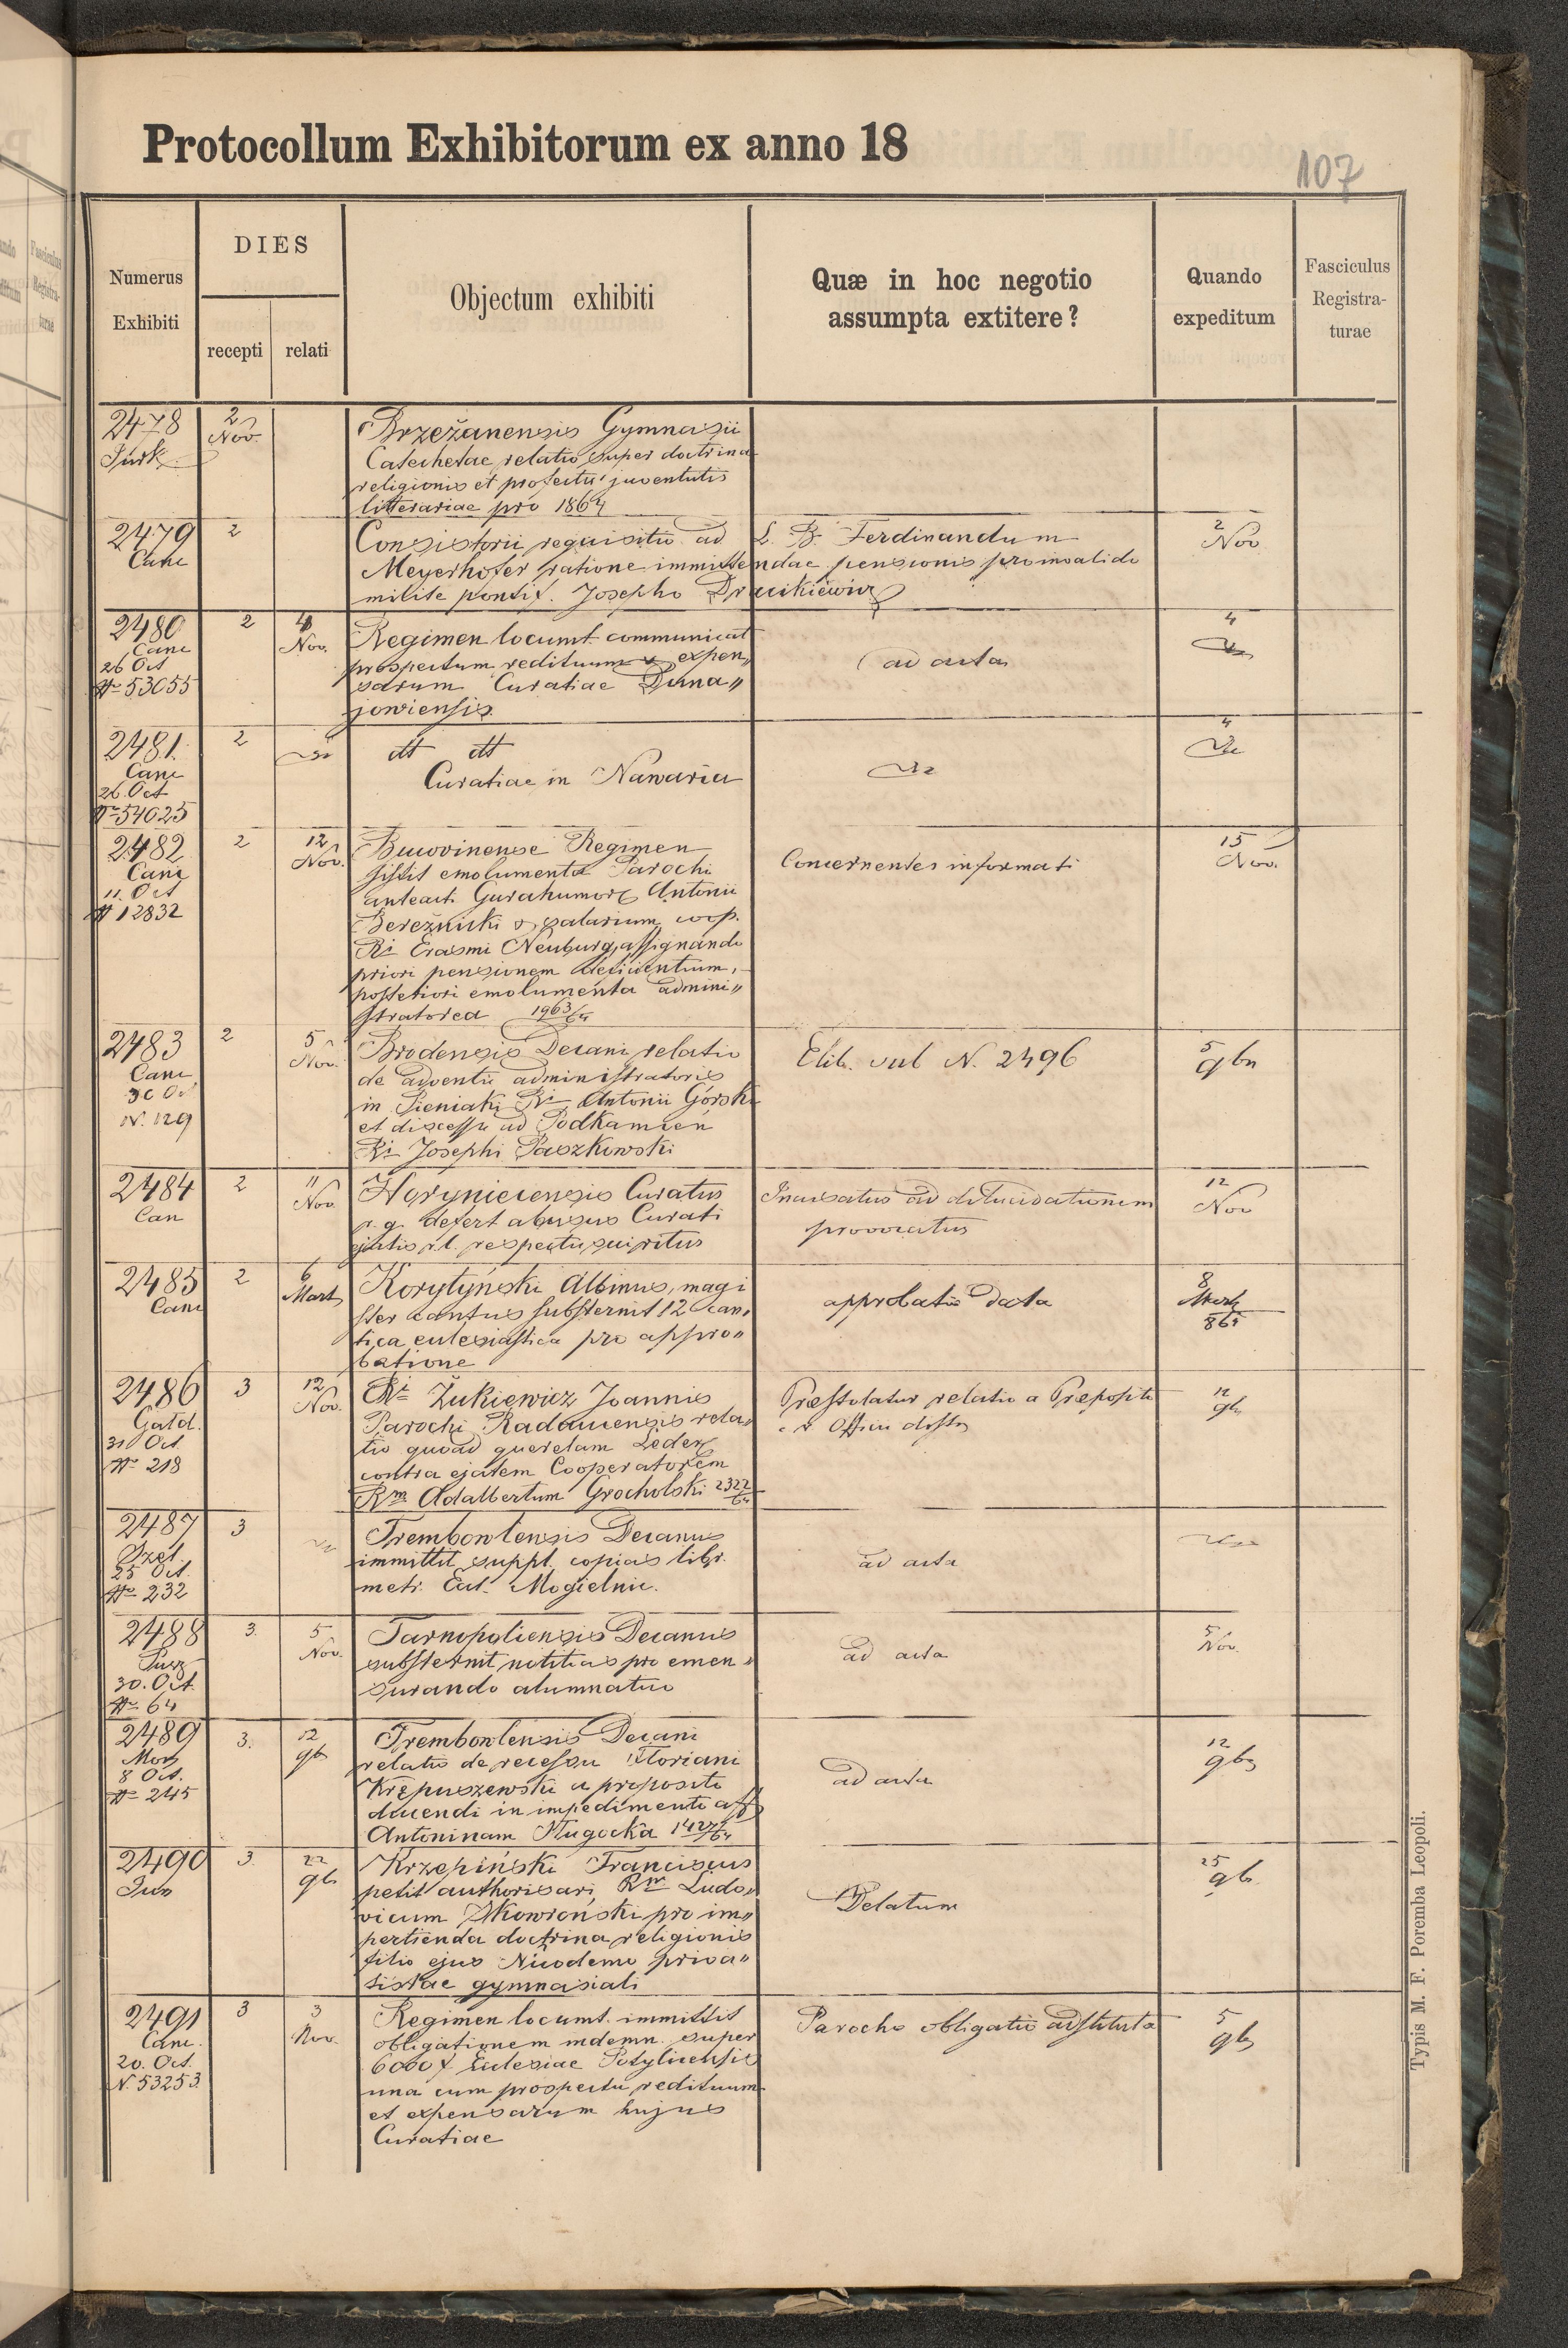 Protocollum Exhibitorum ex anno 18
107
Numerus Exhibiti
DIES
recepti
relati
Objectum exhibiti
Quæ in hoc negotio assumpta extitere?
Quando expeditum
Fasciculus Registra-turae
2478
2
Nov.
Brzeżanensis Gymnasii
Catechetae relatio super doctrina
religionis et profectu juventutis
litterariae pro 1864
2479
Canc
2
Consistorii requisitio ad L. B. Ferdinandum
Meyerhofer ratione immittendae pensionis pro invalido
milite pontif. Josepho
2
Nov
2480
Canc
26 Oct
N 53055
2
4
Nov.
Regimen locumt. communicat
prospectum redituum & expen„
sarum Curatiae Duna„
jowiensis
ad acta
4
2481.
Canc
26. Oct
N 54025
2
dtt dtt
Curatiae in Nawaria
4
2482
Canc
11. Oct
N 12832
2
12
Nov.
Bucovinense Regimen
sistit emolumenta Parochi
anteact. Gurahumore Antonii
Bereżnicki & salarium coop.
Ri Erasmi Neuburg, assignando
priori pensionem deficientium,
posteriori emolumenta admini„
stratorea 1963/64
Concernentes informati
15
Nov.
2483
Canc
30 Oc
N. 129
2
5
Nov.
Brodensis Decani relatio
de adventu administratoris
in Pieniaki Ri Antonii Górski
et discessu ad Podkamień
Ri Josephi Paszkowski
Elib. sub N. 2496
5
9bri
2484
Can
2
11
Nov.
Horyniecensis Curatus
r. g. defert abusus Curati
ejatis r. l. respectu sui ritus
Incusatus ad dilucidationem
provocatus
12
Nov
2485
Canc
2
6
Mart
Korytyński Albinus, magi
ster cantus substernit 12 can„
tica eclesiastica pro appro„
batione
approbatio data
8
Mart
865
2486
Gald.
31 Oct
N 218
3
12
Nov.
Ri Żukiewicz Joannis
Parochi Radaucensis rela„
tio quoad querelam Leder
contra ejatem Cooperatorem
Rm Adalbertum Grocholski 2322/64
Præstolatur relatio a Præposito
12
9b
2487
25 Oct.
N 232
3
Trembowlensis Decanus
immittit suppl. copias libr.
metr. Ecl. Mogielnic.
ad acta
2488
30. Oct.
N 64
3.
5
Nov.
Tarnopoliensis Decanus
substernit notitias pro emen„
surando alumnatico
ad acta
5
Nov.
2489
8 Oct.
N 245
3.
12
9b
Trembowlensis Decani
relatio de recessu Floriani
a proposito
ducendi in impedimento aff
Antoninam 1427/64
ad acta
12
9b
2490
3.
22
9b
Krzepiński Franciscus
petit authorisari Rm Ludo„
vicum Skowroński pro im„
pertienda doctrina religionis
filio ejus Nicodemo priva„
tistae gymnasiali
Delatum
25
9b.
2491
Canc.
20. Oct.
N. 53253
3
3
Nov.
Regimen locumt. immittit
obligationem indemn. super
6000 f Eclesiae Potylicensis
una cum prospectu redituum
et expensarum hujus
Curatiae
Parocho obligatio adstituta
5
9b
Typis M. F. Poremba Leopoli.